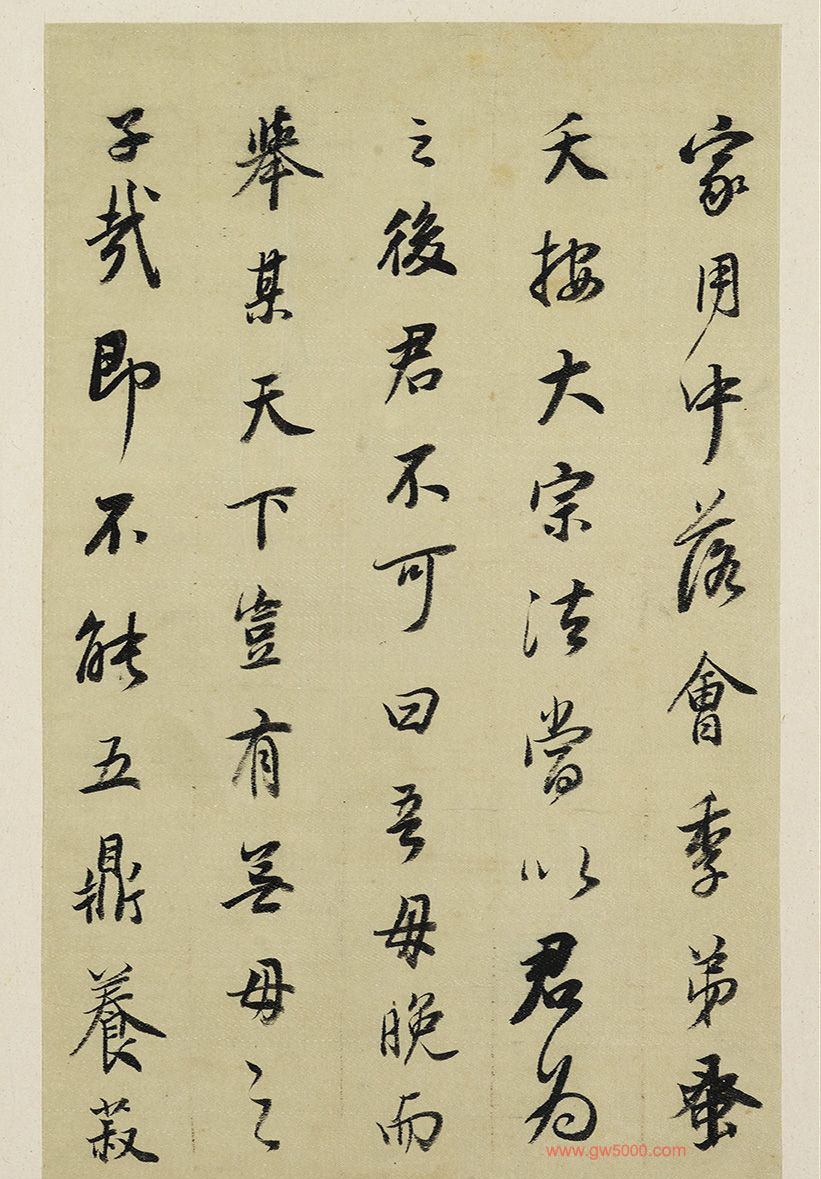 家用中落會季弟蚤
夭按大宗法當以君為
之後君不可曰吾母晚而
舉某天下豈有無母之
子哉即不能五鼎養菽
www.gw5000.com